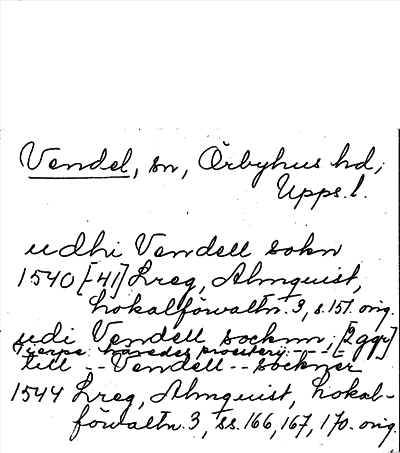 Vendel, sn, Örbyhus hd,
Upps. l.
udhi Vendell sokn
1540 [-41] Lreg, Almquist,
Lokalförvaltn. 3, s. 151. orig.
udi Vendell socknn, [2 ggr]
häredes
till -- Vendell -- sockner
1544 Lreg, Almquist, Lokal-
förvaltn. 3, ss. 166, 167, 170. orig.